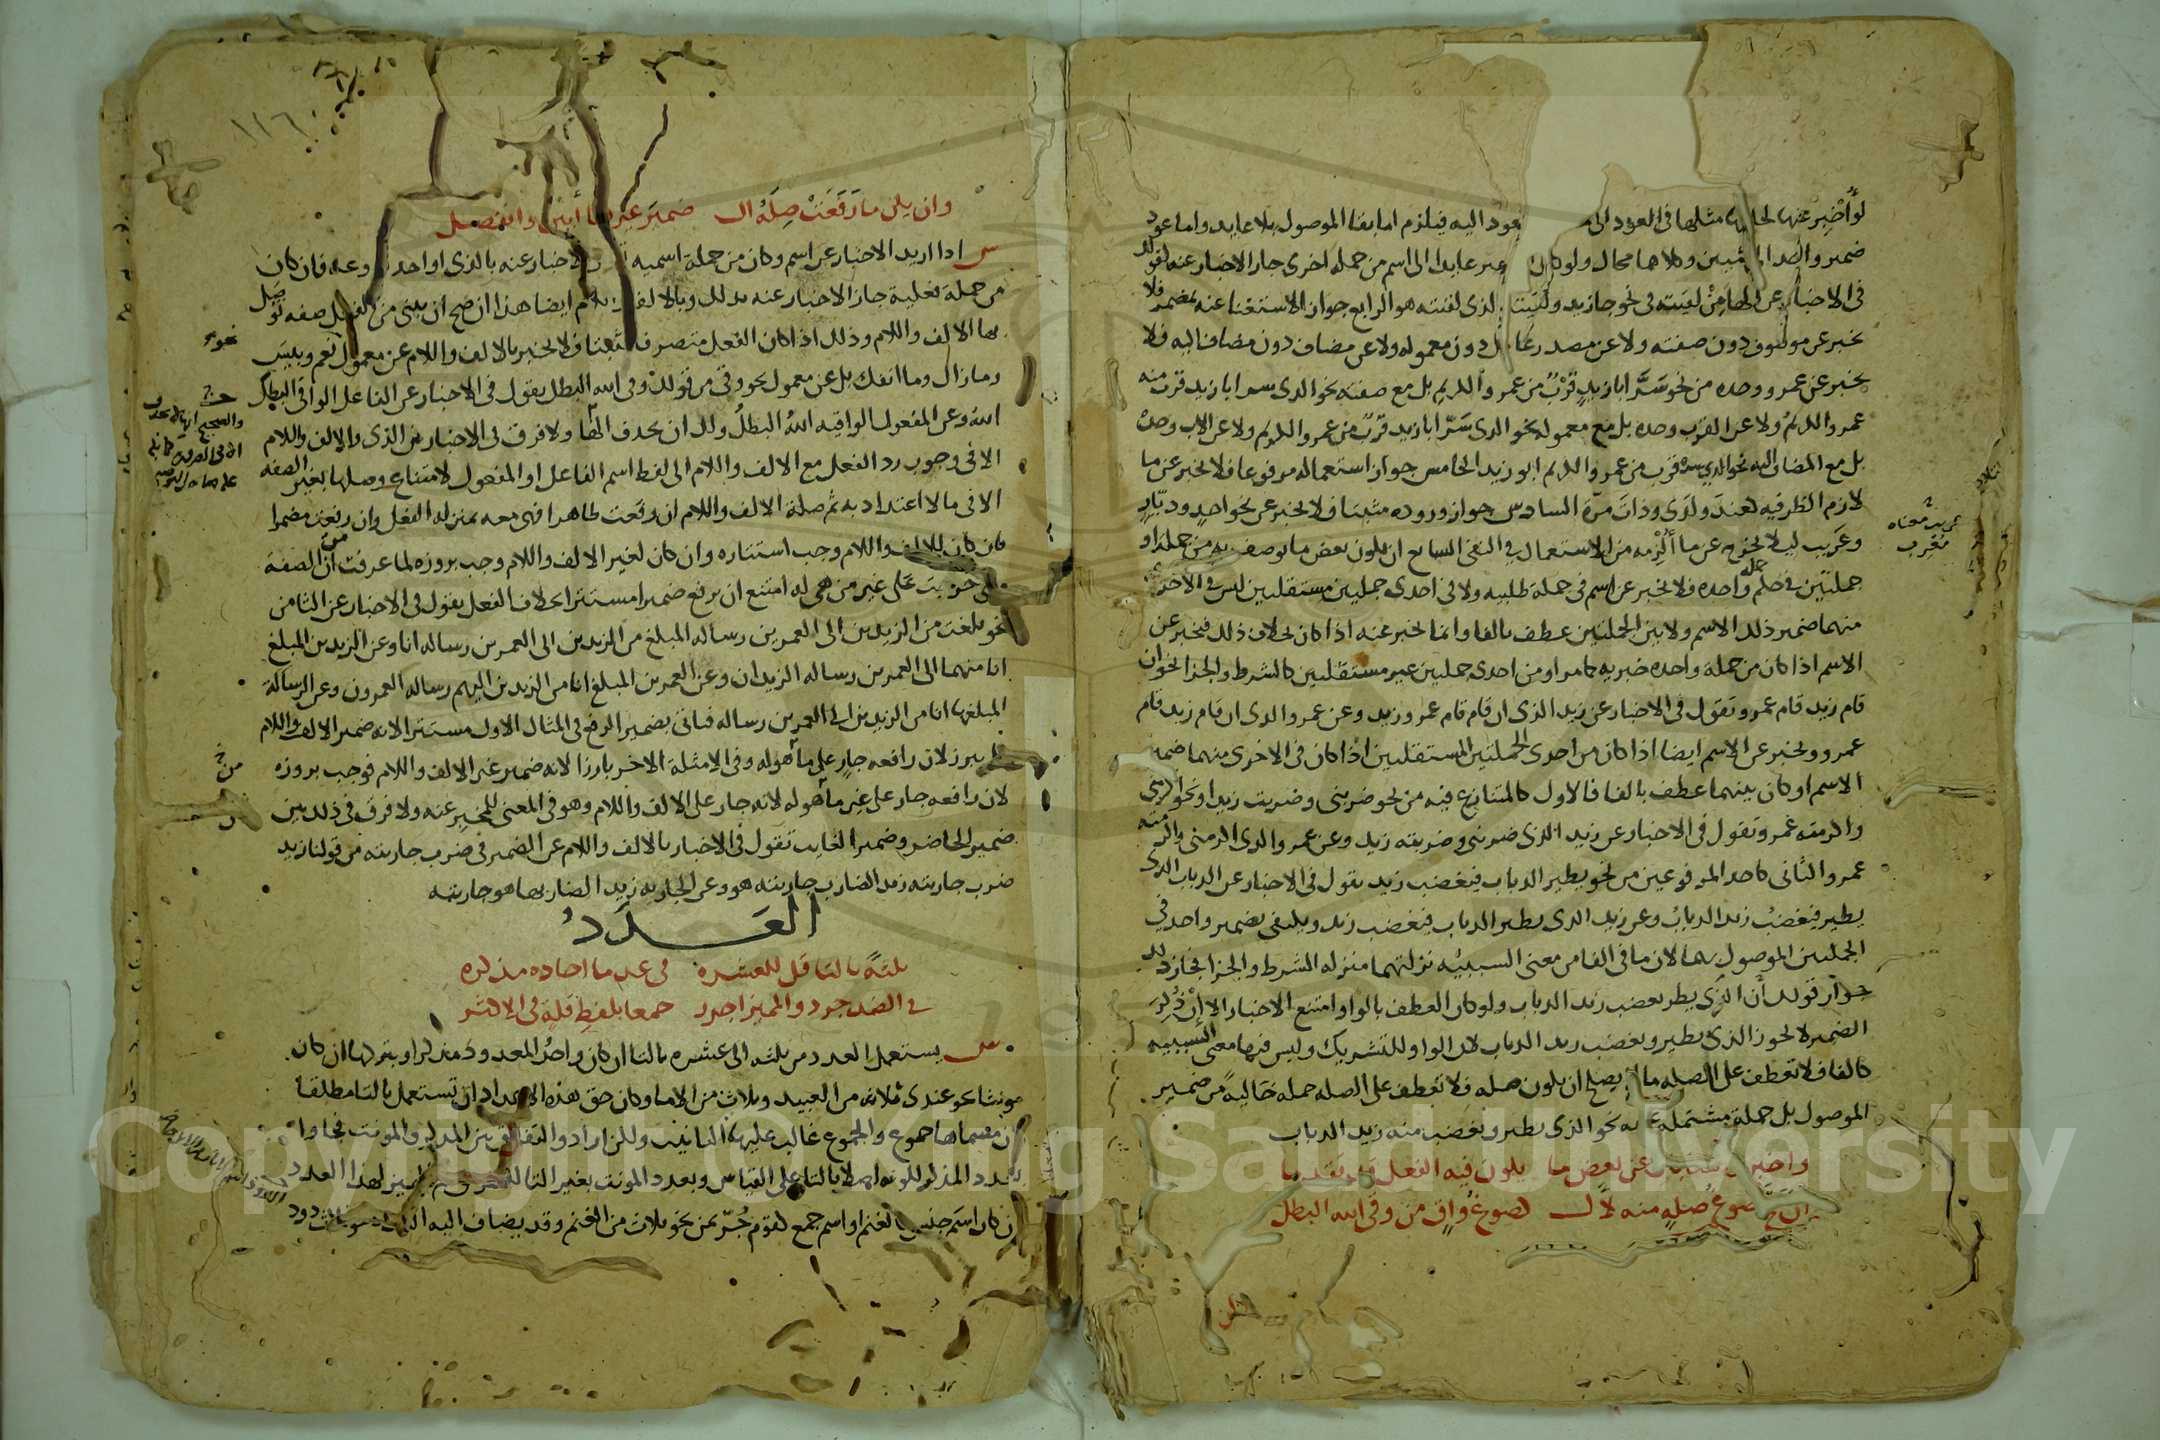 لو أُخْبِرَ عنها لخلفها مثلها في العود الى يعود اليه فيلزم اما بقا الموصول بلا عايد واما عود
ضمير واحد الى شيئين وكلاهما محال ولو كان عايدا الى اسم من جملة اخرى جاز الاخبار عنه لقولك
في الاخبار عن الها من لقيته في نحو جا زيد ولقيته الذى لقيته هو الرابع جواز الاستغنا عنه بمضمر فلا
يخبر عن موصوف دون صفته ولا عن مصدر عامل دون معموله ولا عن مضاف دون مضاف اليه فلا
يخبر عن عمرو وحده من نحو سَرَّ ابا زيدٍ قرْبٌ من عمرو الكريم بل مع صفته نحو الذى سر ابا زيد قرب منه
عمرو الكريم ولا عن القرب وحده بل مع معموله نحو الذى سَرّ ابا زيد قربٌ من عمرو الكريم ولا عن الاب وحده
بل مع المضاف اليه نحو الذى سره قرب من عمرو الكريم ابو زيد الخامس جواز استعماله مرفوعا فلا يخبر عن ما
لازم الظرفيه كعند ولَدَى وذاتَ مرة السادس جواز وروده مثبتا فلا يخبر عن نحو احدٍ وديّارٍ
وعَريب ليلا يخرج عن ما أُلْزِمه من الاستعمال في النفى السابع ان يكون بعض ما يوصف به من جملة او
جملتين في حكم جملة واحده فلا يخبر عن اسم في جملة طلبيه ولا في احدى جملتين مستقلتين ليس في الاخرى
منهما ضمير ذلك الاسم ولا بين الجملتين عطف بالفا وانما يخبر عنه اذا كان بخلاف ذلك فيخبر عن
الاسم اذا كان من جملة واحده خبريه كما مر او من احدى جملتين غير مستقلتين كالشرط والجزا نحو ان
قام زيد قام عمرو تقول في الاخبار عن زيد الذى ان قام قام عمرو زيد وعن عمرو الذى ان قام زيد قام
عمرو ويخبر عن الاسم ايضا اذا كان من احدى الجملتين المستقلتين اذا كان في الاخرى منهما ضمير
الاسم او كان بينهما عطف بالفا فالاول كالمتنازع فيه من نحو ضربنى وضربت زيدا ونحو اكرمنى
واكرمته عمرو وتقول في الاخبار عن زيد الذى ضربنى وضربته زيد وعن عمرو الذى اكرمنى واكرمته
عمرو الثانى كاحد المرفوعين من نحو يطير الذباب فيغضب زيد تقول في الاخبار عن الذباب الذى
يطير فيغضبُ زيد الذبابُ وعن زيد الذى يطير الذباب فيغضب زيد ويكتفى بضمير واحد في
الجملتين الموصول بهما لان ما في الفا من معنى السببيه نزلتهما منزله الشرط والجزا فجاز ذلك
جواز قولك ان الذى يطر يغضب زيد الذباب ولو كان العطف بالواو امتنع الاخبار الا إنْ ذُكِرَ
الضمير لا يحوز الذى يطير ويغضب زيد الذباب لان الواو للتشريك وليس فيها معنى السببيه
كالفا فلا تعطف على الصله ما لا يصلح ان يكون صله فلا تعطف على الصله جمله خَاليةً من ضمير
الموصول بل جملة مشتمله عليه نحو الذى يطير ويغضب منه زيد الذباب
واخبروا هنا بال عن بعض ما يكون فيه الفعل قد تقدما
ان صح صوغُ صِلةٍ منه لأَل كصوغ وُاقٍ من وقى الله البطل
عريب معناه
مُعْرب
وان يكن ما رَفَعَتْ صِلَةُ ال ضميرَ غيرها أُبينَ وانفصل
ش اذا اريد الاخبار عن اسم وكان من جملة اسميه الاخبار عنه بالذى او احد فروعه فان كان
من جملة فعلية جاز الاخبار عنه بذلك وبالالف واللام ايضا هذا ان صح ان يبنى من الفعل صفه توصَل
بها الالف واللام وذلك اذا كان الفعل متصرفا مثبتا فلا يخبر بالالف واللام عن معمول نعم وبيسَ
وما زال وما انفك بل عن معمول نحو وقى من قولك وقى الله البطل تقول في الاخبار عن الفاعل الواقى البطلَ
اللهُ وعن المفعول الواقيه اللهُ البطلُ ولك ان تحذف الها ولا فرق في الاخبار بين الذى والالف واللام
الا في وجوب رد الفعل مع الالف واللام الى لفظ اسم الفاعل او المفعول لامتناع وصلها بغير الصفه
الا في ما لا اعتداد به ثم صلة الالف واللام ان رفعت ظاهرا فهى معه بمنزله الفعل وان رفعت مضمرا
فان كان للالف واللام وجب استتاره وان كان لغير الالف واللام وجب بروزه لما عرفت من ان الصفة
متى جرت عَلى غير من هى له امتنع ان ترفع ضميرا مستترا بخلاف الفعل تقول في الاخبار عن التا من
نحو بلغت من الزيدين الى العمرين رساله المبلغ من الزيدين الى العمرين رساله انا وعن الزيدين المبلغ
انا منهما الى العمرين رساله الزيدان وعن العمرين المبلغ انا من الزيدين اليهم رساله العمرون وعن الرسالة
المبلغها انا من الزيدين الى العمرين رساله فتاتى بضمير الرفع في المثال الاول مستترا لانه ضمير الالف واللام
فلم يبرز لان رافعه جارٍ على ما هو له وفي الامثلة الاخر بارزا لانه ضمير غير الالف واللام فوجب بروزه
لان رافعه جار على غير ما هو له لانه جار على الالف واللام وهو في المعنى للمخبر عنه ولا فرق في ذلك بين
ضمير الحاضر وضمير الغايب تقول في الاخبار بالالف واللام عن الضمير في ضرب جاريته من قولنا زيد
ضرب جاريته زيد الضارب جاريته هو وعن الجاريه زيد الضاربها هو جاريته
العَـــدَدُ
ثلثةً بالتا قل للعشره في عد ما احاده مذكره
في الضد جرد والمميزَ اجرر جمعا بلفظِ قلةٍ في الاكثر
ش يستعمل العدد من ثلثه الى عشره بالتا ان كان واحدُ المعدود مذكرا وبتركها ان كان
مونثا نحو عندى ثلاثه من العبيد وثلاث من الاما وكان حق هذه الاعداد ان تستعمل بالتا مطلقا
لان مسماها جموع والجموع غالب عليها التانيث ولكن ارادوا التفريق بين المذكر والمونث فجاوا
بعدد المذكر لكونه اصلا بالتا على القياس وبعدد المونث بغير التا للفرق ومميز لهذا العدد
ان كان اسم جنسٍ كالغنم او اسم جمع كقوم جُرّ بمن نحو ثلاث من الغنم وقد يضاف اليه العدد نحو ثلاث ذود